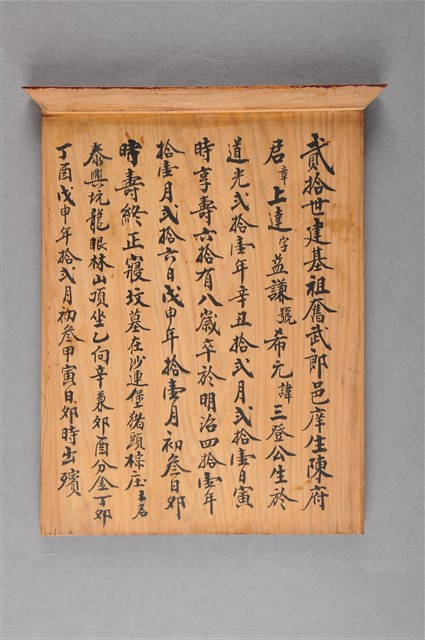 貳拾世建基祖奮武郎邑庠生陳府
君章上達字益謙號希元諱三登公生於
道光貳拾壹年辛丑拾貳月貳拾壹日寅
時享壽六拾有八歲卒於明治四拾壹年
拾壹月貳拾六日戊申年拾壹月初叁日卯
時壽終正寢坟墓在沙連堡猪頭棕庄土名
泰興坑龍眼林山頂坐乙向辛兼卯酉分金丁卯
丁酉戊申年拾貳月初叁甲寅日卯時出殯